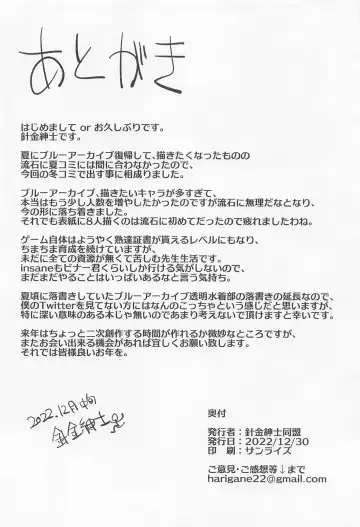 あとがき
はじめまして or お久しぶりです。
針金紳士です。
夏にブルーアーカイブ復帰して、描きたくなったものの
流石に夏コミには間に合わなかったので、
今回の冬コミで出す事に相成りました。
ブルーアーカイブ、描きたいキャラが多すぎて、
本当はもう少し人数を増やしたかったのですが流石に無理だなとなり、
今の形に落ち着きました。
それでも表紙に8人描くのは流石に初めてだったので疲れましたわね。
ゲーム自体はようやく熟達証書が貰えるレベルにもなり、
ちまちま育成を続けていますが、
未だに全ての資源が無くて苦しむ先生生活です。
insaneもビナー君くらいしか行ける気がしないので、
まだまだやることはいっぱいあるなと言う気持ち。
夏頃に落書きしていたブルーアーカイブ透明水着部の落書きの延長なので、
僕のTwitterを見てない方にはなんのこっちゃという感じだと思いますが、
特に深い意味のある本じゃ無いのであまり考えないで頂けますと幸いです。
来年はちょっと二次創作する時間が作れるか微妙なところですが、
またお会い出来る機会があれば宜しくお願い致します。
それでは皆様良いお年を。
2022.12月
針金紳士
奥付
発行者：針金紳士同盟
発行日：2022/12/30
印　刷：サンライズ
ご意見・ご感想等↓まで
harigane22@gmail.com